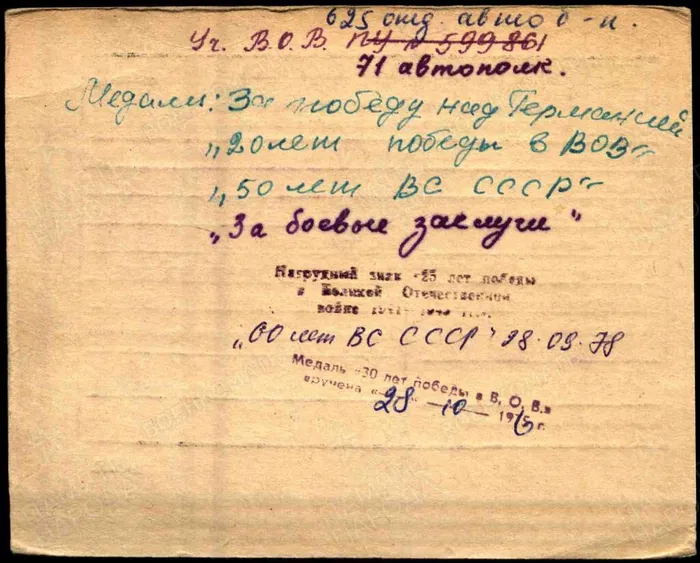 625 отд. авто б-н.
Уч. В.О.В. ПУ № 599861
71 автополк.
Медали: За победу над Германией
„20 лет победы в ВОВ"
„50 лет ВС СССР"
„За боевые заслуги"
Нагрудный знак «25 лет победы
в Великой Отечественной
войне
„60 лет ВС СССР" 28.09.78
Медаль «30 лет победы в В. О. В.»
вручена « 28 » 10 1975 г.